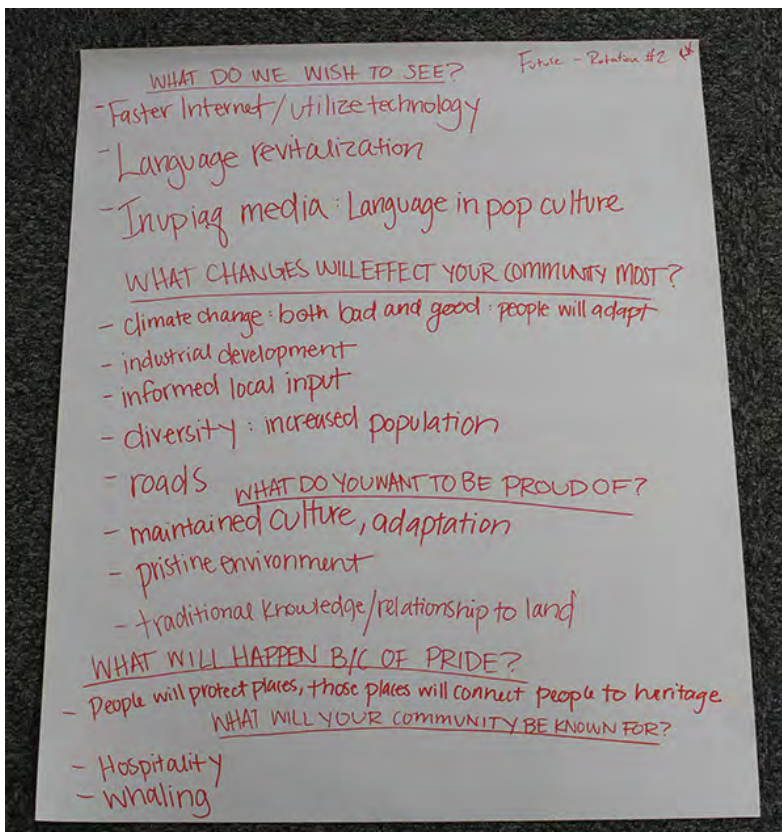 Future - Rotation #2
WHAT DO WE WISH TO SEE?
- Faster Internet/utilize technology
- Language revitalization
- Inupiaq media : Language in pop culture
WHAT CHANGES WILL EFFECT YOUR COMMUNITY MOST?
- climate change : both bad and good : people will adapt
- industrial development
- informed local input
- diversity : increased population
- roads
WHAT DO YOU WANT TO BE PROUD OF?
- maintained culture, adaptation
- pristine environment
- traditional knowledge/relationship to land
WHAT WILL HAPPEN B/C OF PRIDE?
- People will protect places, those places will connect people to heritage
WHAT WILL YOUR COMMUNITY BE KNOWN FOR?
- Hospitality
- whaling